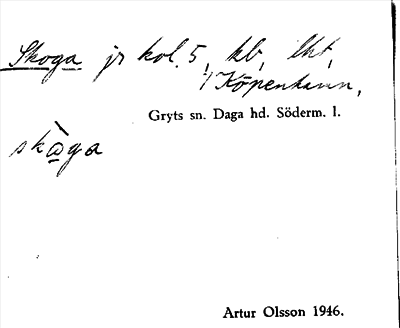 Skoga jr kol. 5, kb, lht,
i/ Köpenhamn,
Gryts sn. Daga hd. Söderm. l.
skὰga
Artur Olsson 1946.